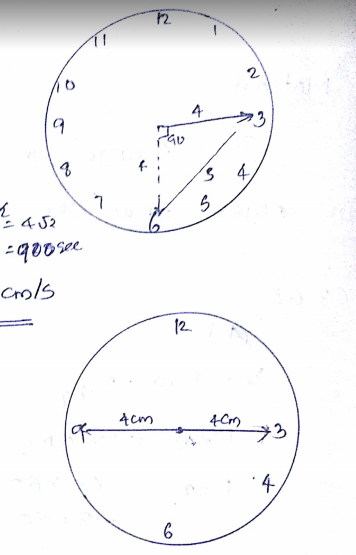 12
11
1
10
2
4
9
3
90
4
8
s
4
7
5
6
= 4√2
= 900 sec
cm/s
12
4cm
4cm
9
3
4
6